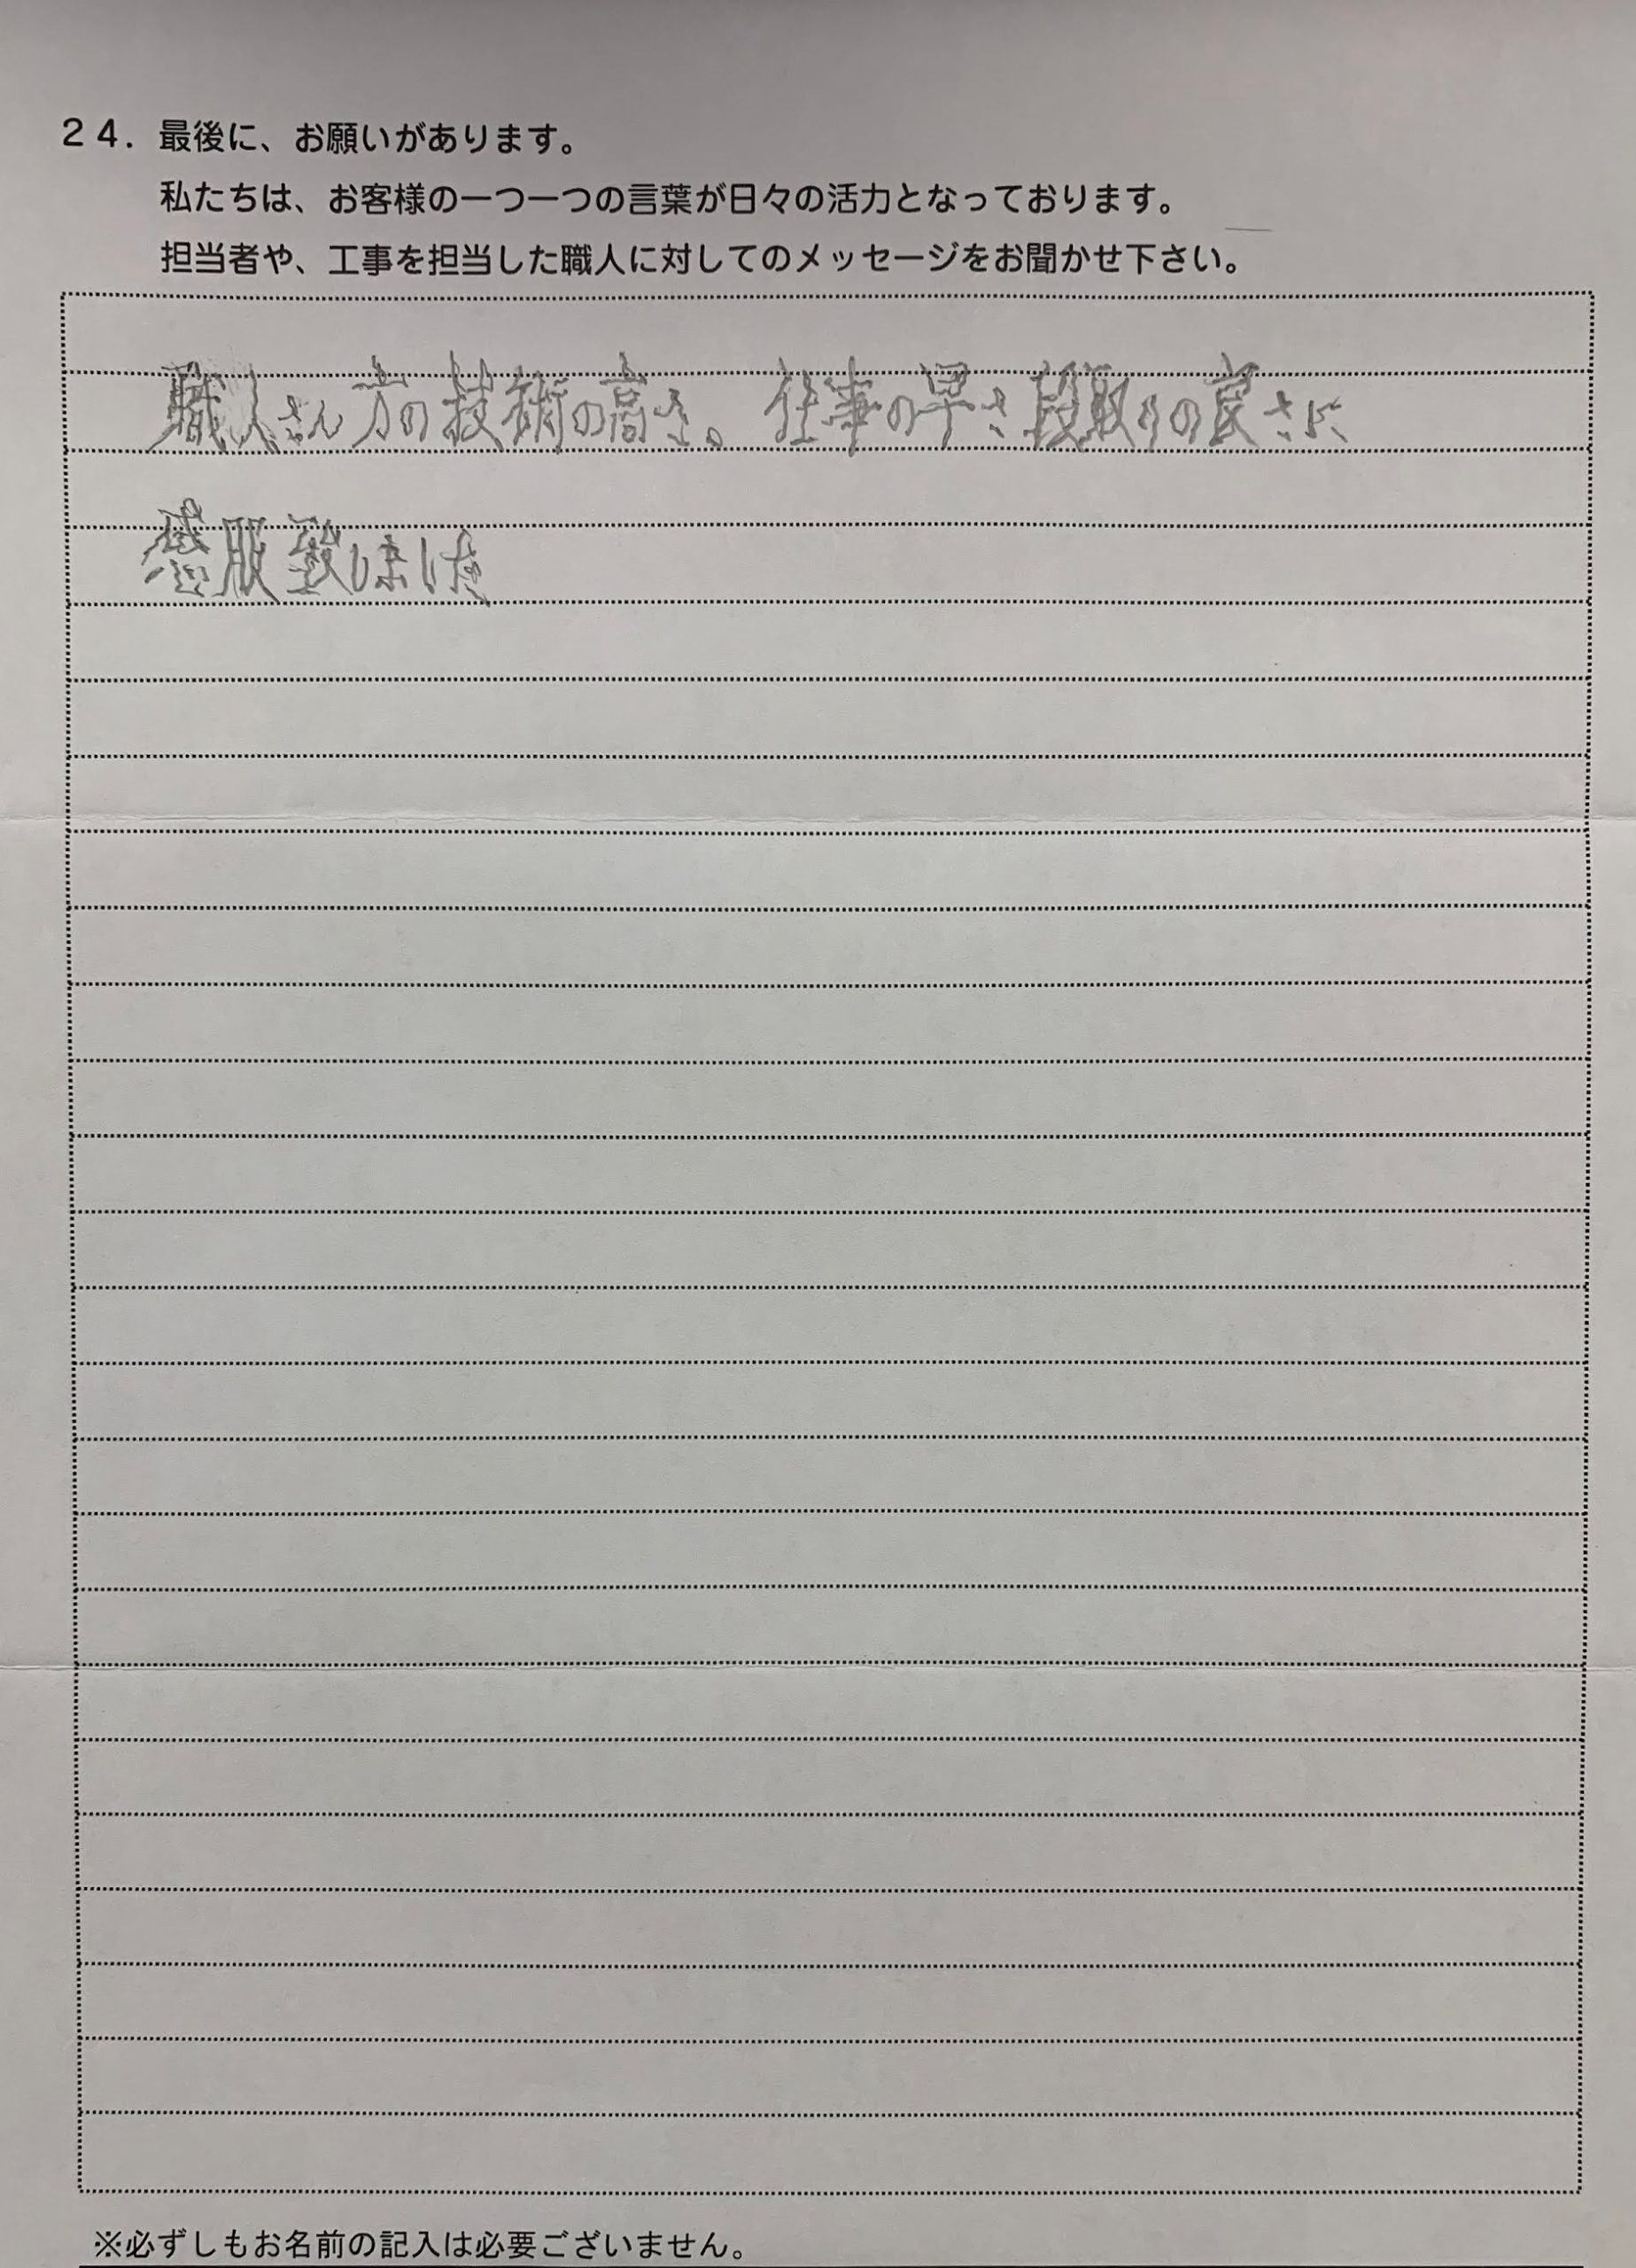 ２４．最後に、お願いがあります。
私たちは、お客様の一つ一つの言葉が日々の活力となっております。
担当者や、工事を担当した職人に対してのメッセージをお聞かせ下さい。
職人さん方の技術の高さ。仕事の早さ段取りの良さに
感服致しました
※必ずしもお名前の記入は必要ございません。